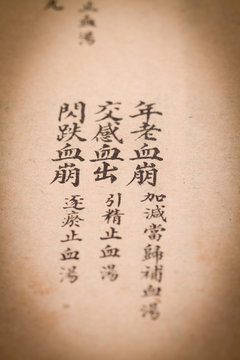 止血湯
年老血崩
加減當歸補血湯
交感血出
引精止血湯
閃跌血崩
逐瘀止血湯